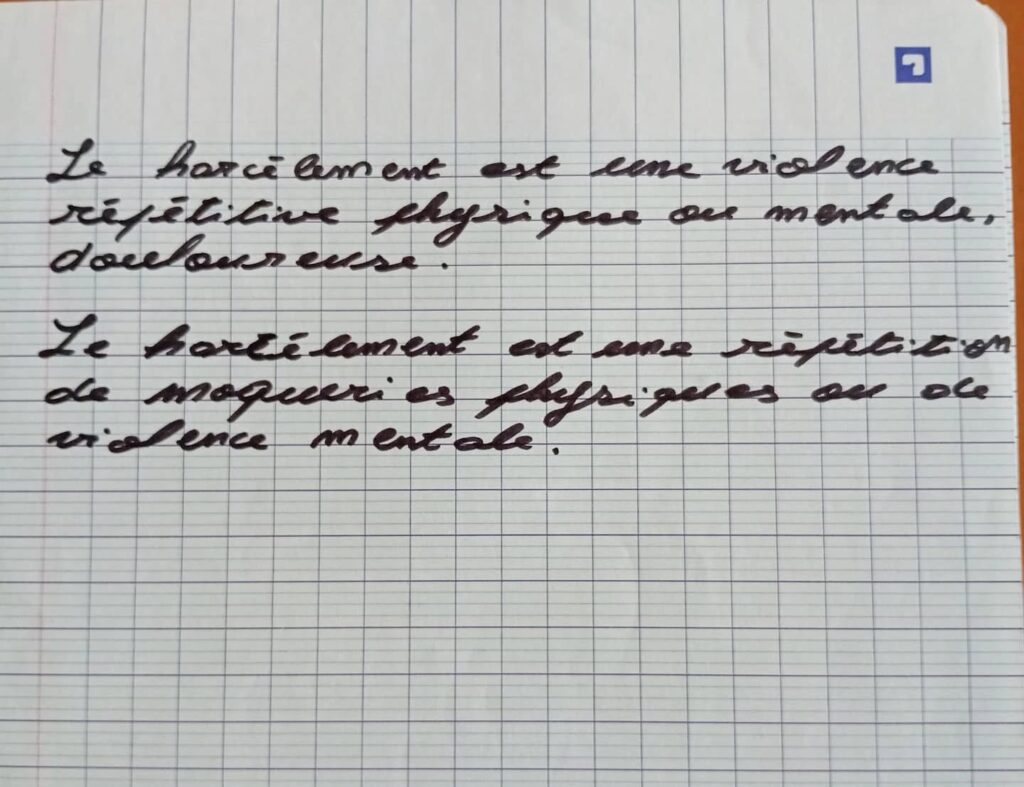 Le harcèlement est une violence
répétitive physique ou mentale,
douloureuse.
Le harcèlement est une répétition
de moqueries physiques ou de
violence mentale.